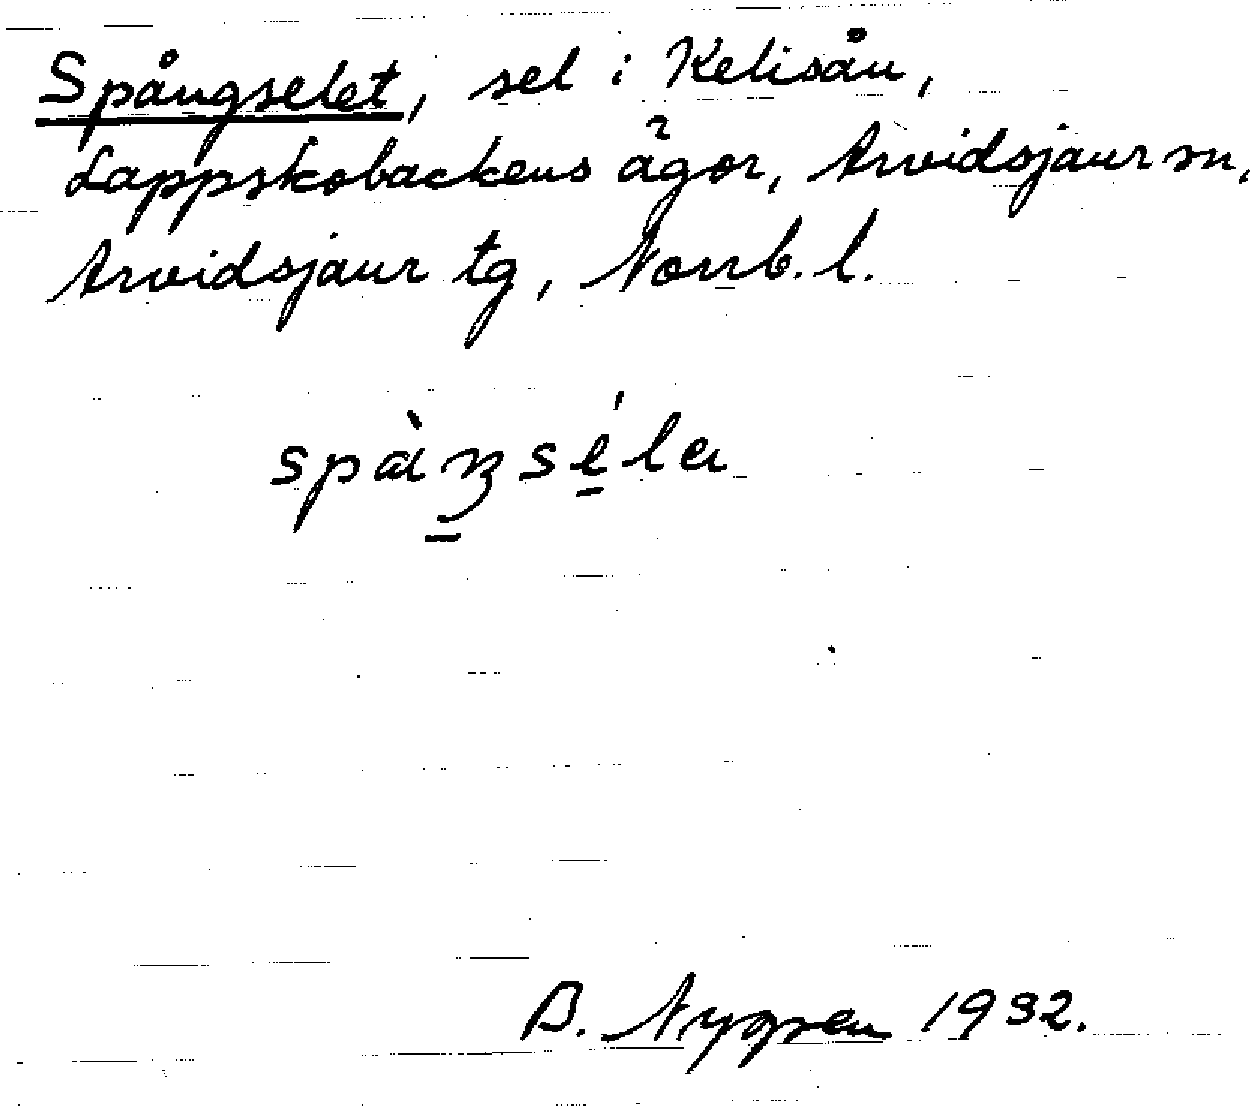 Spångselet, sel i Kelisån,
Lappskobackens ägor, Arvidsjaur sn,
Arvidsjaur tg, Norrb. l.
B. Nygren 1932.